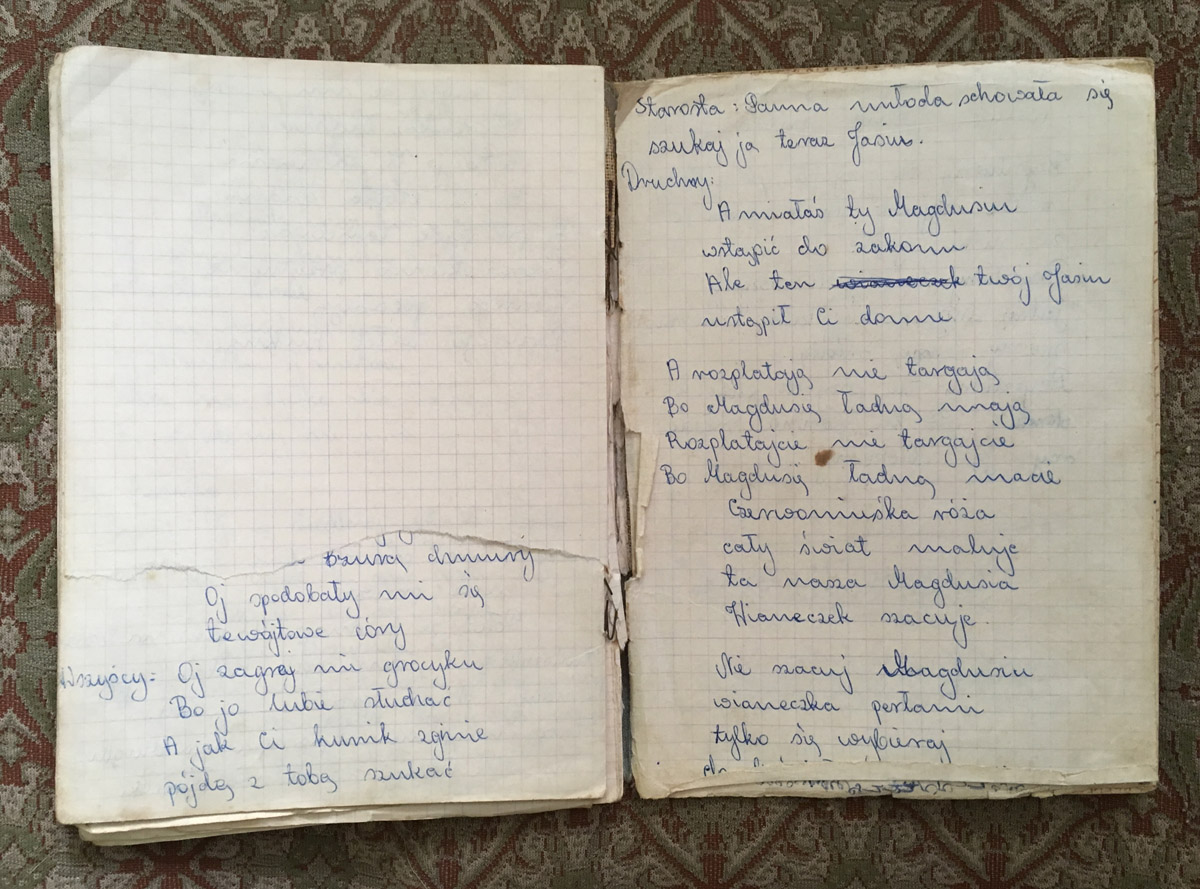 szusą chmury
Oj spodobały mi się
te wójtowe córy
Wszyścy: Oj zagrej mi grocyku
Bo jo lubie słuchać
A jak Ci kunik zginie
pójdę z tobą szukać
Starosta: Panna młoda schowała się
szukaj ją teraz Jasiu.
Druchny:
A miałaś ty Magdusiu
wstąpić do zakonu
Ale ten wianeczek twój Jasiu
ustąpił Ci domu
A rozplatają nie targają
Bo Magdusię ładną mają
Rozplatajcie nie targajcie
Bo Magdusię ładną macie
Czerwoniuśka róża
cały świat maluje
ta nasza Magdusia
Wianeczek szacuje.
Nie szacuj Magdusiu
wianeczka perłami
tylko się wybieraj